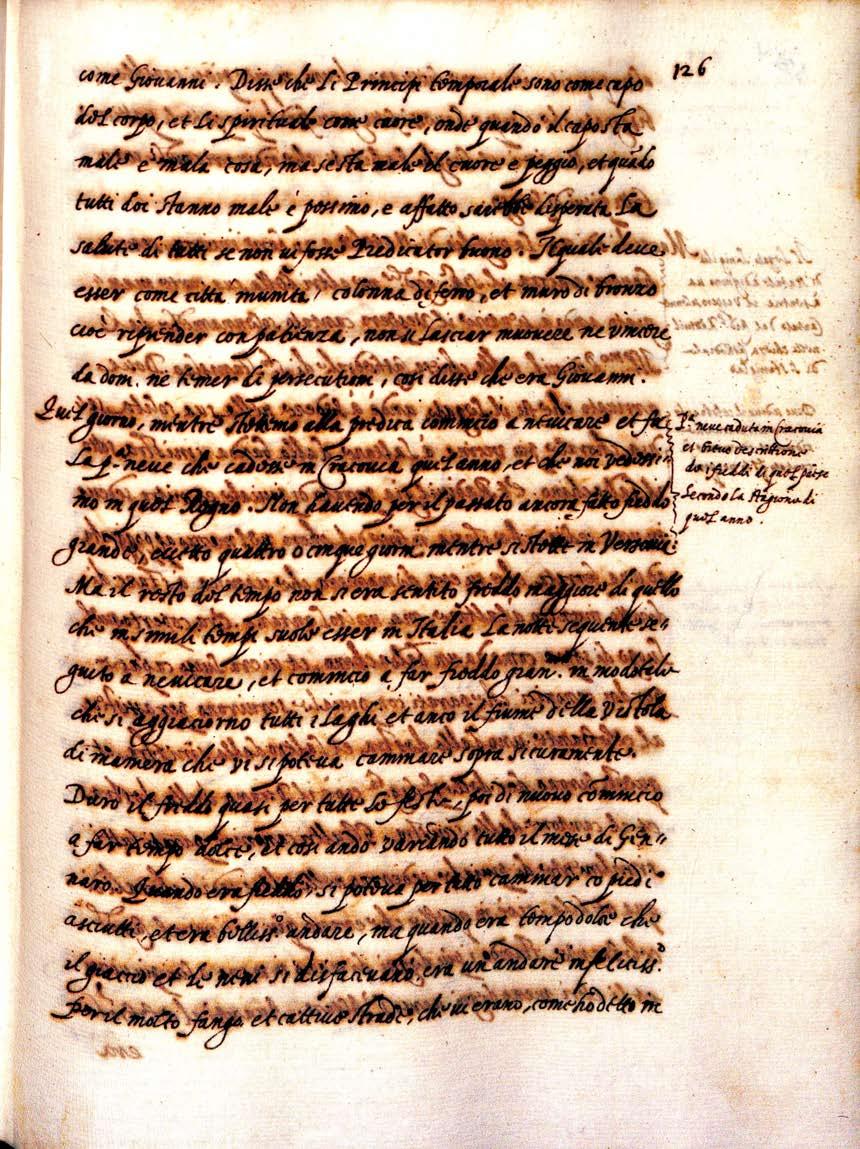 126
come Giovanni. Disse che li Principi temporale sono come capo
del corpo, et li spirituale come cuore, onde quando il capo sta
male è mala cosa, ma se sta male il cuore e peggio, et quãdo
tutti doi stanno male è pessimo, e affatto sarebbe disperata la
salute di tutti se non vi fosse Predicator buono. Il quale deve
esser come città munita, colonna di ferro, et muro di bronzo
cioè riprender con patienza, non si lasciar muovere ne vincere
da doni, ne temer di persecutioni, così disse che era Giovanni.
Quel giorno, mentre stettemo alla predica comincio a nevicare et fu
la p.ª neve che cadesse in Cracovia quel anno, et che noi vedessi-
mo in quel Regno. Non havendo per il passato ancora fatto freddo
grande, eccetto quattro o cinque giorni mentre si stette in Versavia.
Ma il resto del tempo non si era sentito freddo maggiore di quello
che in simili tempi suole esser in Italia. La notte seguente se-
guito a nevicare, et comincio a far freddo gran. in modo tale
che si aggiaciorno tutti i laghi et anco il fiume della Vistola
di maniera che vi si poteva caminare sopra sicuramente.
Durò il freddo quasi per tutte le feste, poi di nuovo cominciò
a far tempo dolce, et cosi andò variando tutto il mese di Gen-
naro. Quando era freddo, si poteva per tutto caminar co piedi
asciutti, et era belliss.º andare, ma quando era tempo dolce che
il giaccio et le nevi si disfacevano, era un'andare infeliciss.º
per il molto fango et cattive strade, che vi erano, come ho detto in
P.ª neve caduta in Cracovia
et breve descrittione
de i freddi di quel paese
secondo la stagione di
quel anno.